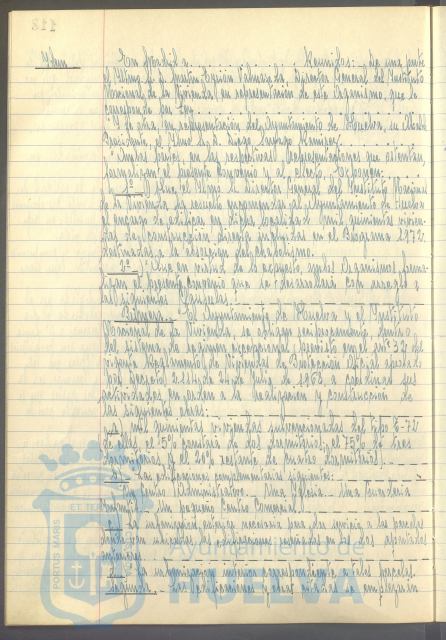 118
Idem
En Madrid a Reunidos: De una parte
el Iltmo. Sr. D. Martín Eyries Valmaseda, Director General del Instituto
Nacional de la Vivienda, en representación de este Organismo, que le
corresponde por Ley.
Y de otra, en representación del Ayuntamiento de Huelva, su Alcalde
Presidente, el Iltmo. Sr. D.
Ambas partes, en las respectivas representaciones que ostentan,
formalizan el presente Convenio y al efecto, Exponen:
1º.- Que el Iltmo. Sr. Director General del Instituto Nacional
de la Vivienda ha resuelto encomendar al Ayuntamiento de Huelva
el encargo de edificar en dicha localidad mil quinientas vivien-
das de construcción directa incluidas en el Programa 1972
destinadas a la absorción del chabolismo.
2º.- Que en virtud de lo expuesto, ambos Organismos forma-
lizan el presente convenio que se desarrollará con arreglo a
las siguientes Cláusulas:
Primera.- El Ayuntamiento de Huelva y el Instituto
Nacional de la Vivienda, se obligan recíprocamente, dentro
del sistema de régimen excepcional previsto en el artº 32 del
vigente Reglamento de Viviendas de Protección Oficial aprobado
por Decreto 2.114 de 24 de Julio de 1968, a coordinar sus
actividades, en orden a la realización y construcción de
las siguientes obras:
a) mil quinientas viviendas subvencionadas del tipo
de ellas el 5% constará de dos dormitorios, el 75% de tres
dormitorios y el 20% restante de cuatro dormitorios.
b) Las edificaciones complementarias siguientes:
Un Centro Administrativo. Una Iglesia. Una Guardería
Infantil. Un pequeño Centro Comercial.
c) La urbanización exterior necesaria para dar servicio a las parcelas
donde van ubicadas las edificaciones reseñadas en los dos apartados
anteriores.
d) La urbanización interior correspondiente a tales parcelas.
Segunda.- Las edificaciones y obras citadas se emplazarán
PORTUS MARIS ET TERRAE
Ayuntamiento de
HUELVA